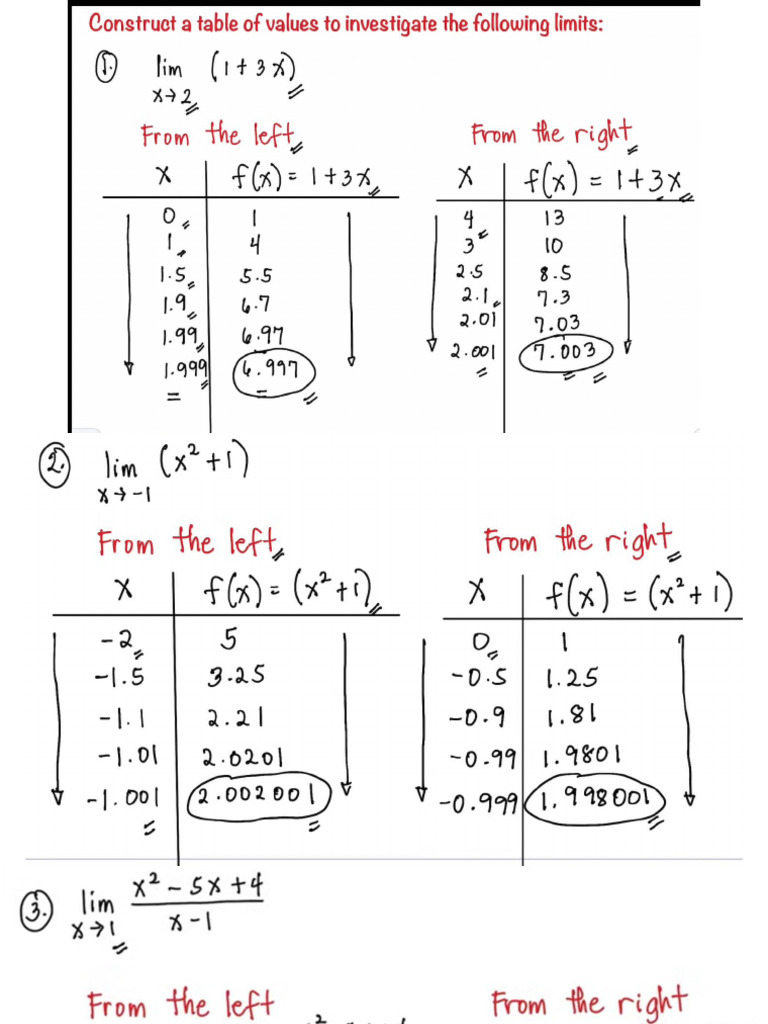 Construct a table of values to investigate the following limits:
1. lim (1+3x)
x→2
From the left From the right
x f(x) = 1+3x x f(x) = 1+3x
0 1 4 13
1 4 3 10
1.5 5.5 2.5 8.5
1.9 6.7 2.1 7.3
1.99 6.97 2.01 7.03
1.999 6.997 2.001 7.003
2. lim (x²+1)
x→-1
From the left From the right
x f(x) = (x²+1) x f(x) = (x²+1)
-2 5 0 1
-1.5 3.25 -0.5 1.25
-1.1 2.21 -0.9 1.81
-1.01 2.0201 -0.99 1.9801
-1.001 2.002001 -0.999 1.998001
3. lim x²-5x+4
x→1 x-1
From the left From the right